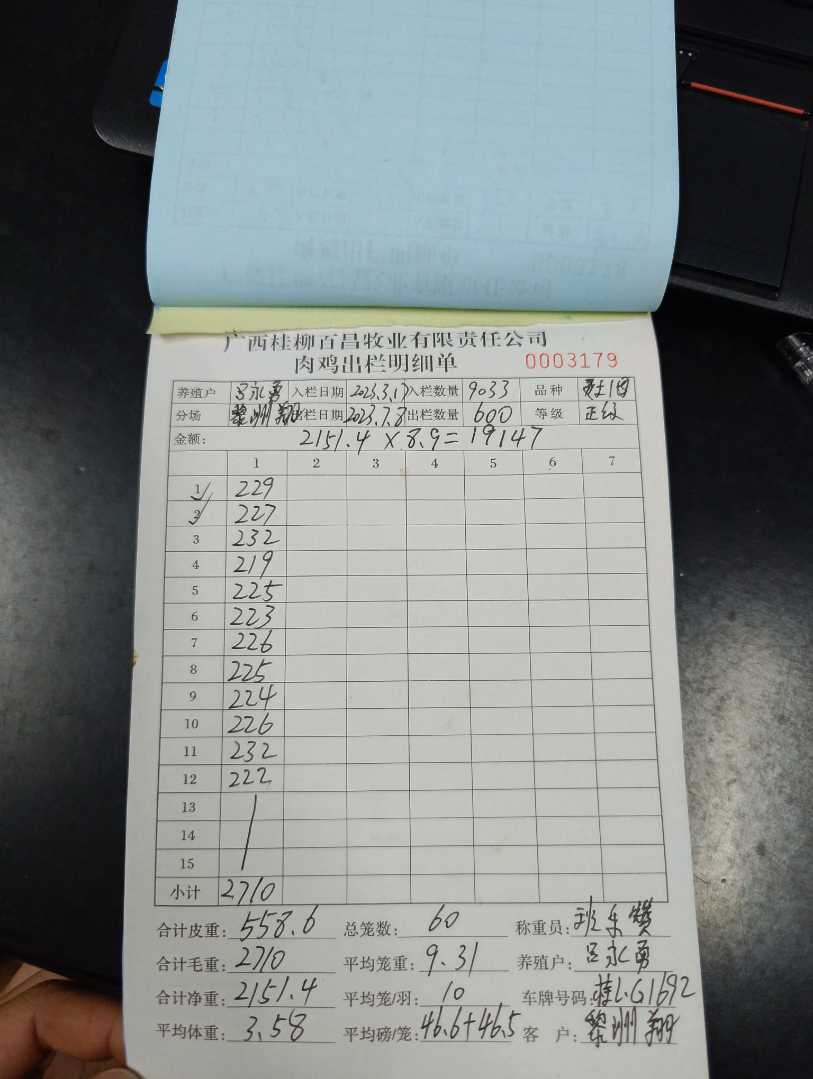 广西桂柳百昌牧业有限责任公司
肉鸡出栏明细单 0003179
养殖户 吕永勇 入栏日期 2023.3.17 入栏数量 9033 品种
分场 黎洲翔 出栏日期 2023.7.8 出栏数量 600 等级 正红
金额: 2151.4 × 8.9 = 19147
1 2 3 4 5 6 7
1 229
2 227
3 232
4 219
5 225
6 223
7 226
8 225
9 224
10 226
11 232
12 222
13
14
15
小计 2710
合计皮重: 558.6 总笼数: 60 称重员:
合计毛重: 2710 平均笼重: 9.31 养殖户: 吕永勇
合计净重: 2151.4 平均笼/羽: 10 车牌号码: 桂L·G1692
平均体重: 3.58 平均磅/笼: 46.6+46.5 客 户: 黎洲翔